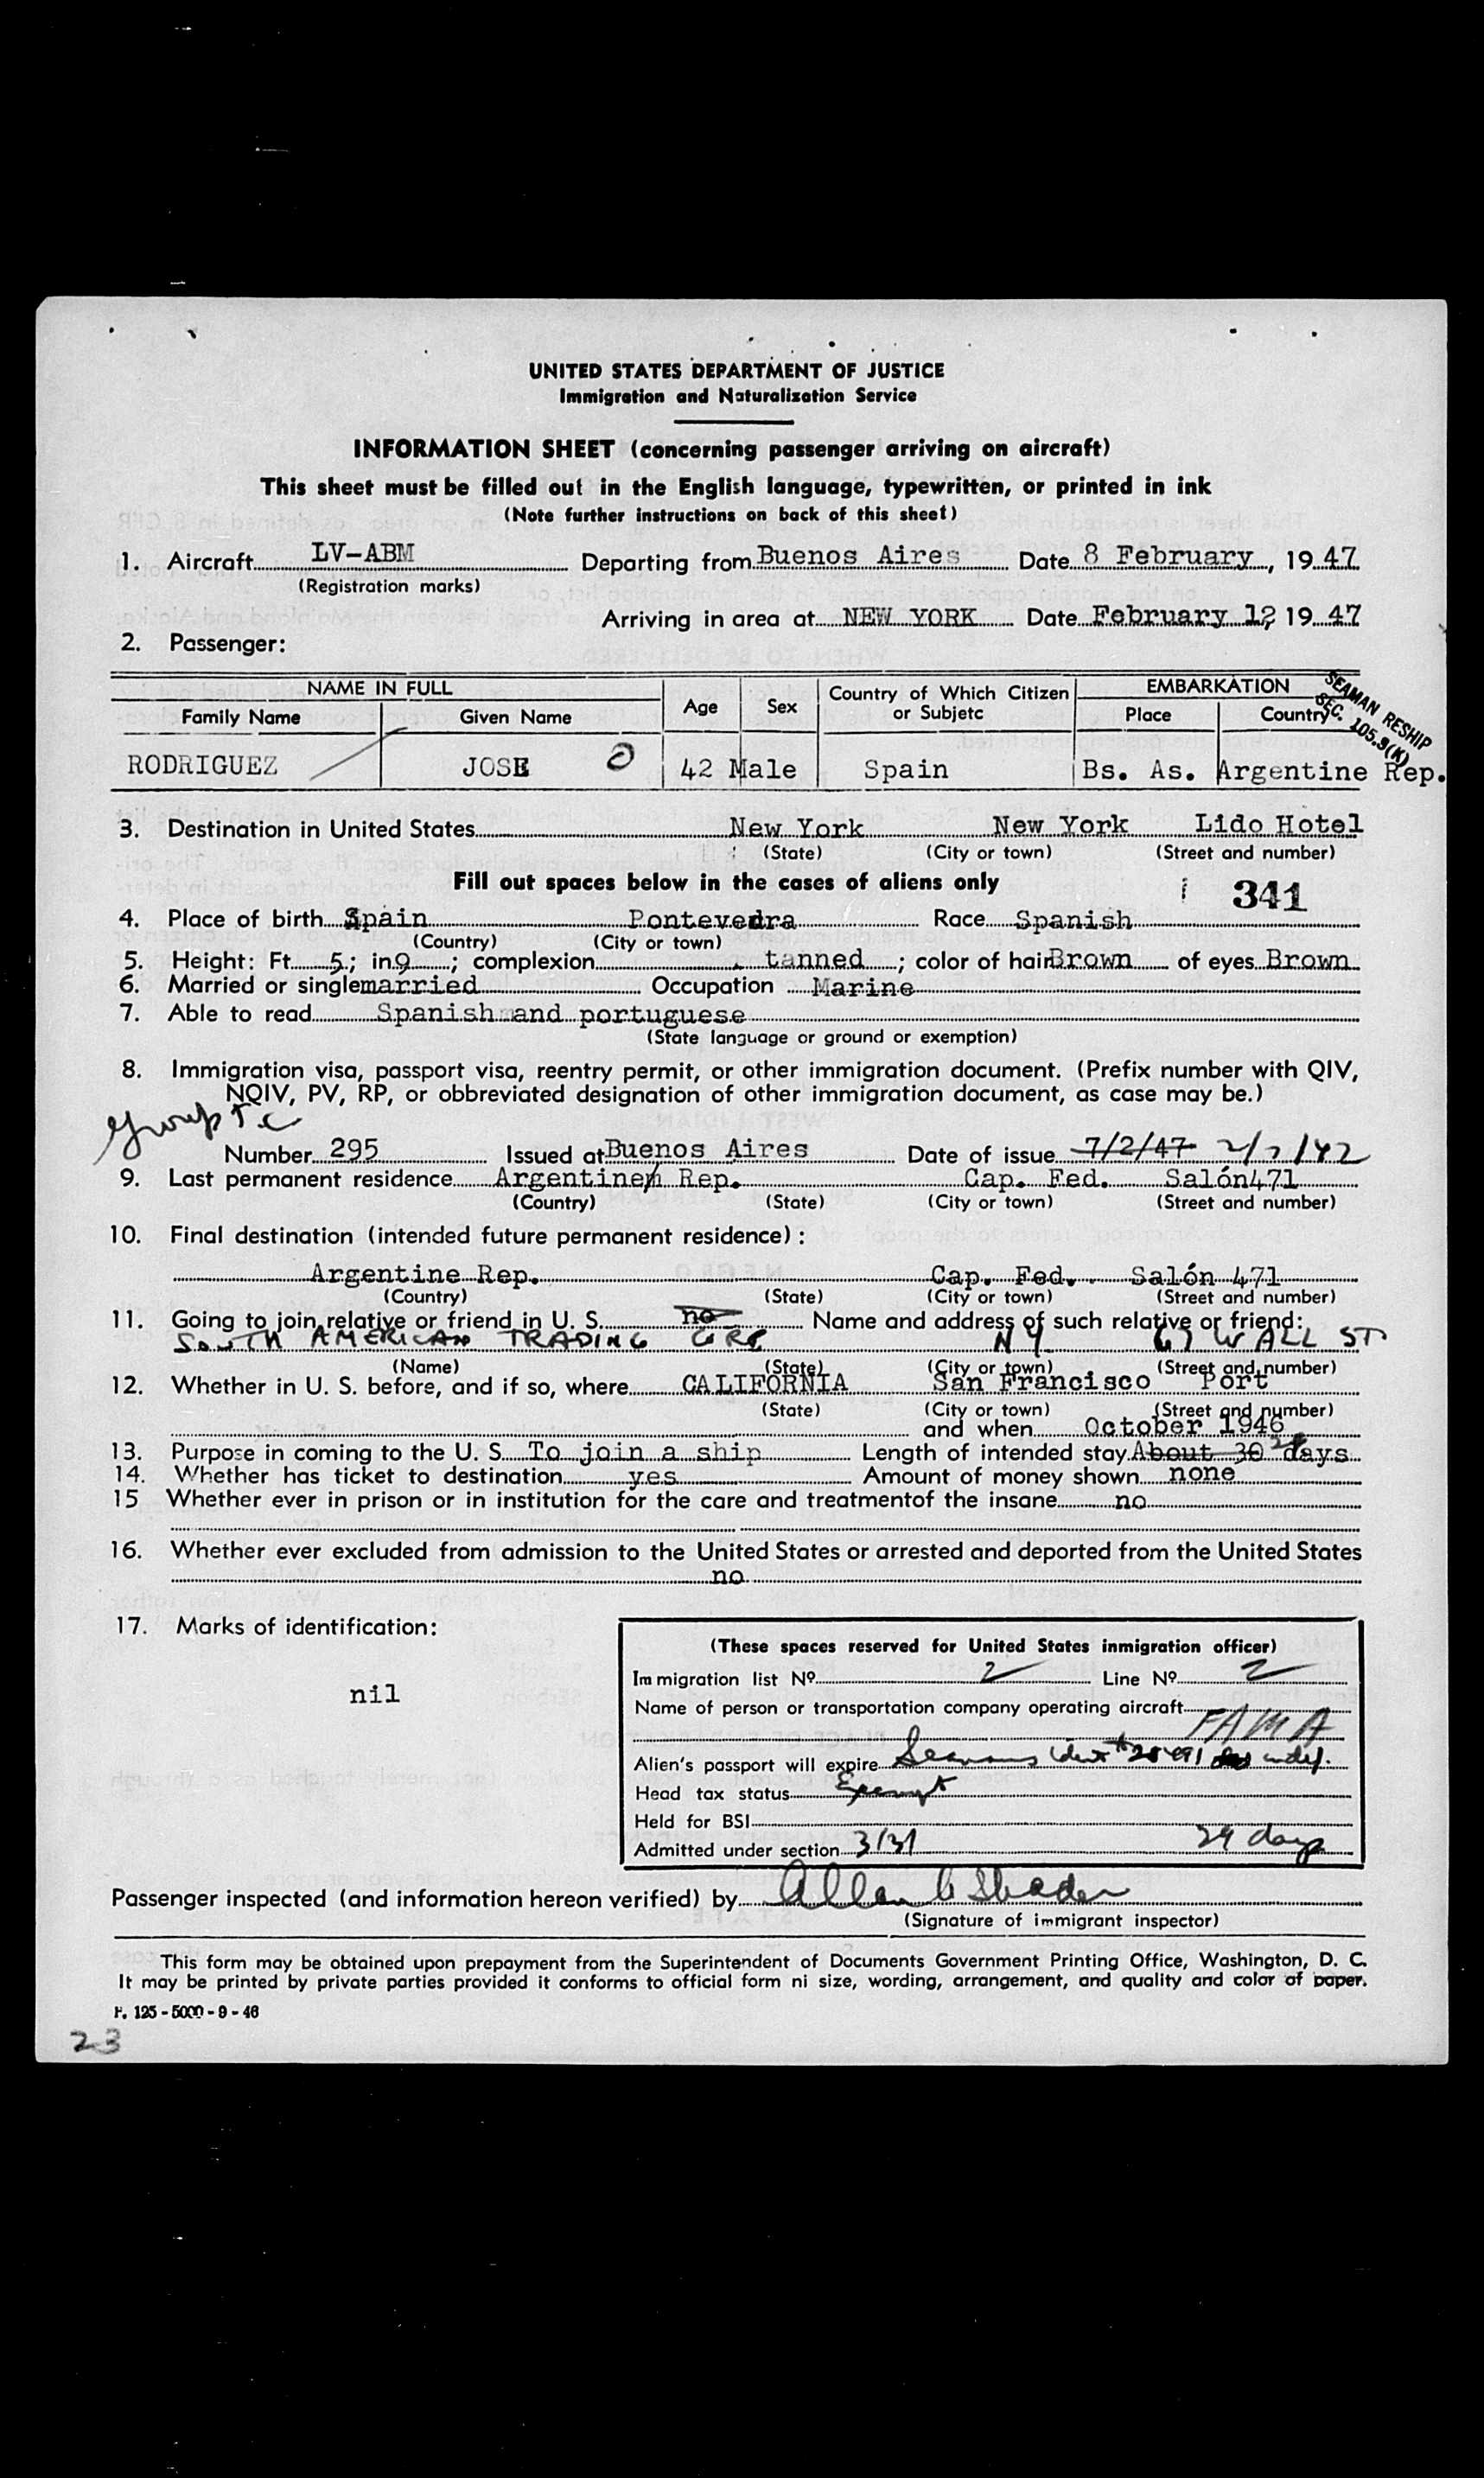 UNITED STATES DEPARTMENT OF JUSTICE
Immigration and Naturalization Service
INFORMATION SHEET (concerning passenger arriving on aircraft)
This sheet must be filled out in the English language, typewritten, or printed in ink
(Note further instructions on back of this sheet)
1. Aircraft LV-ABM Departing from Buenos Aires Date 8 February, 19 47
(Registration marks)
Arriving in area at NEW YORK Date February 12, 19 47
2. Passenger:
NAME IN FULL Age Sex Country of Which Citizen or Subjetc EMBARKATION
Family Name Given Name Place Country
SEAMAN RESHIP
SEC. 105.3(K)
RODRIGUEZ JOSE 42 Male Spain Bs. As. Argentine Rep.
3. Destination in United States New York New York Lido Hotel
(State) (City or town) (Street and number)
Fill out spaces below in the cases of aliens only 341
4. Place of birth Spain Pontevedra Race Spanish
(Country) (City or town)
5. Height: Ft. 5; in 9; complexion tanned; color of hair Brown of eyes Brown
6. Married or single married Occupation Marine
7. Able to read Spanish and portuguese
(State language or ground or exemption)
8. Immigration visa, passport visa, reentry permit, or other immigration document. (Prefix number with QIV,
NQIV, PV, RP, or obbreviated designation of other immigration document, as case may be.)
Group T.C
Number 295 Issued at Buenos Aires Date of issue 7/2/47 2/7/47
9. Last permanent residence Argentine Rep. Cap. Fed. Salón 471
(Country) (State) (City or town) (Street and number)
10. Final destination (intended future permanent residence):
Argentine Rep. Cap. Fed. Salón 471
(Country) (State) (City or town) (Street and number)
11. Going to join relative or friend in U. S. no Name and address of such relative or friend:
SOUTH AMERICAN TRADING CORP NY 67 WALL ST
(Name) (State) (City or town) (Street and number)
12. Whether in U. S. before, and if so, where CALIFORNIA San Francisco Port
(State) (City or town) (Street and number)
and when October 1946
13. Purpose in coming to the U. S. To join a ship Length of intended stay About 30 29 days
14. Whether has ticket to destination yes Amount of money shown none
15 Whether ever in prison or in institution for the care and treatmentof the insane no
16. Whether ever excluded from admission to the United States or arrested and deported from the United States
no
17. Marks of identification:
nil
(These spaces reserved for United States inmigration officer)
Immigration list Nº 2 Line Nº 2
Name of person or transportation company operating aircraft
FAMA
Alien's passport will expire Seamans ident # indef.
Head tax status Exempt
Held for BSI
Admitted under section 3/31 29 days
Passenger inspected (and information hereon verified) by Allen C Shader
(Signature of immigrant inspector)
This form may be obtained upon prepayment from the Superintendent of Documents Government Printing Office, Washington, D. C.
It may be printed by private parties provided it conforms to official form ni size, wording, arrangement, and quality and color of paper.
F. 125 - 5000 - 9 - 46
23